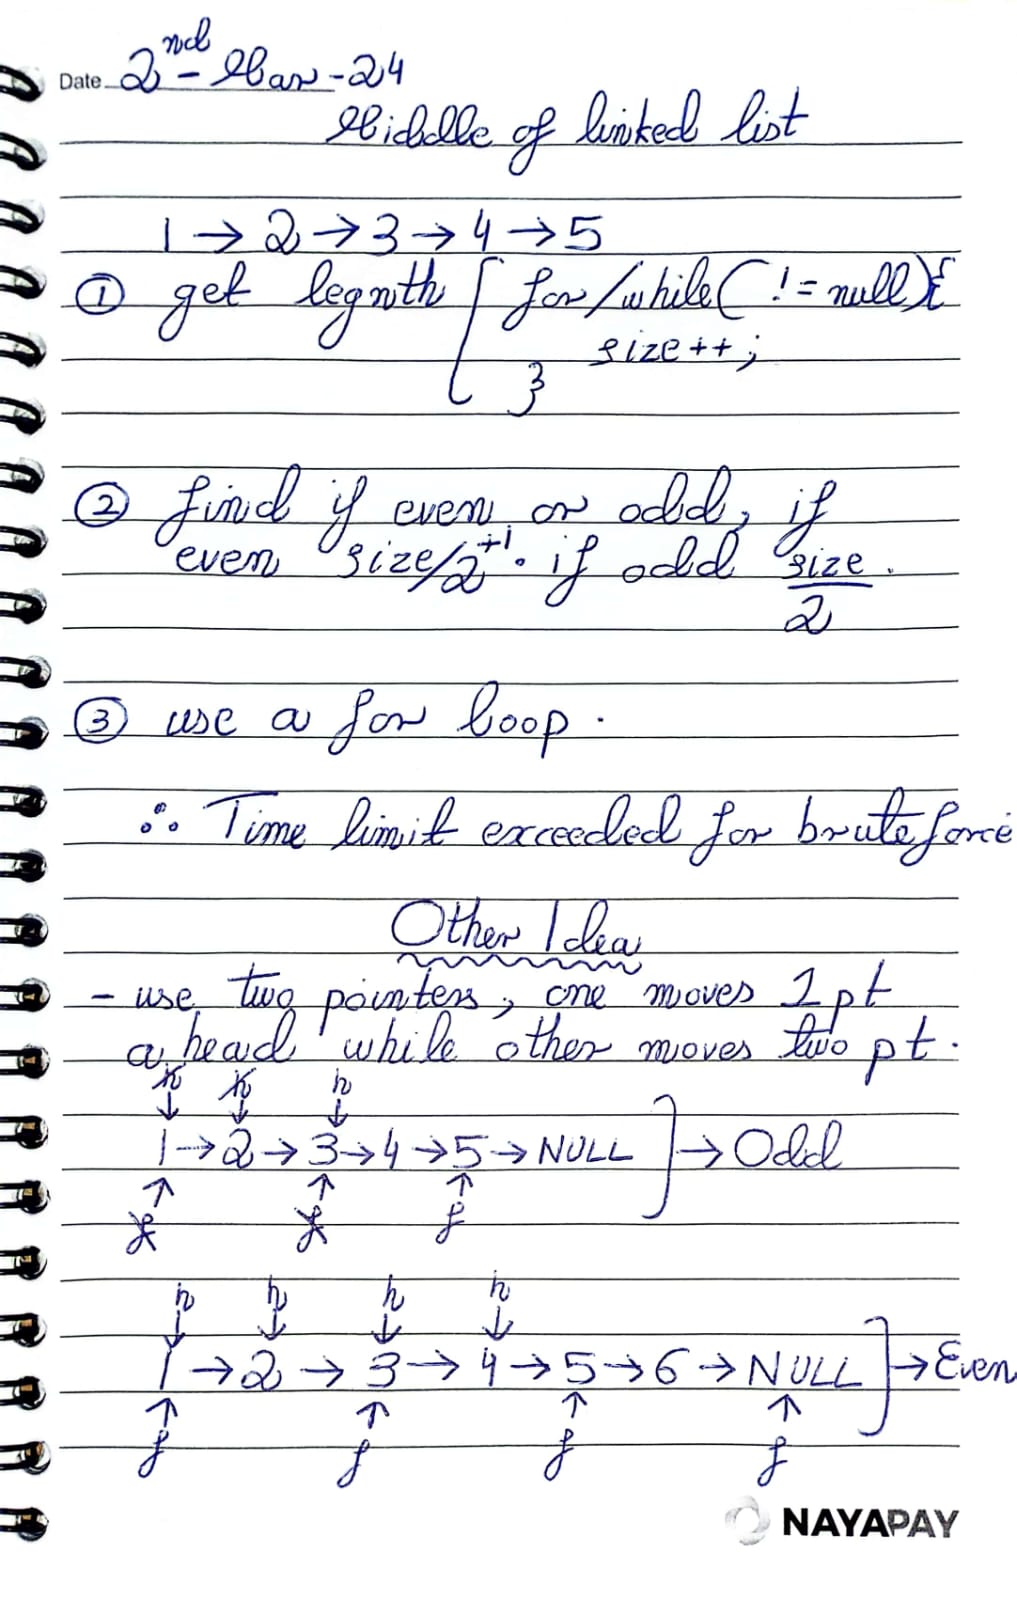 Date 2nd - Mar - 24
Middle of linked list
1 → 2 → 3 → 4 → 5
① get legnth [ for/while( != null){
size++;
}
② find if even or odd, if
even size/2+1. if odd size/2.
③ use a for loop.
∴ Time limit exceeded for brute force
Other Idea
- use two pointers, one moves 1 pt
a head while other moves two pt.
h h h
↓ ↓ ↓
1 → 2 → 3 → 4 → 5 → NULL ] → Odd
↑ ↑ ↑
f f f
h h h h
↓ ↓ ↓ ↓
1 → 2 → 3 → 4 → 5 → 6 → NULL ] → Even
↑ ↑ ↑ ↑
f f f f
NAYAPAY